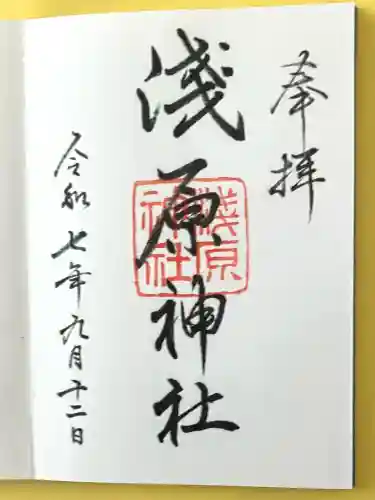 奉拝
淺原神社
淺原神社
令和七年九月十二日